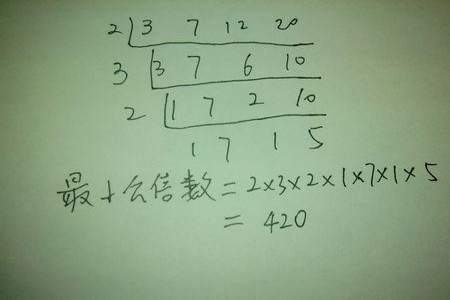 2 3 7 12 20
3 3 7 6 10
2 1 7 2 10
1 7 1 5
最小公倍数=2×3×2×1×7×1×5
=420